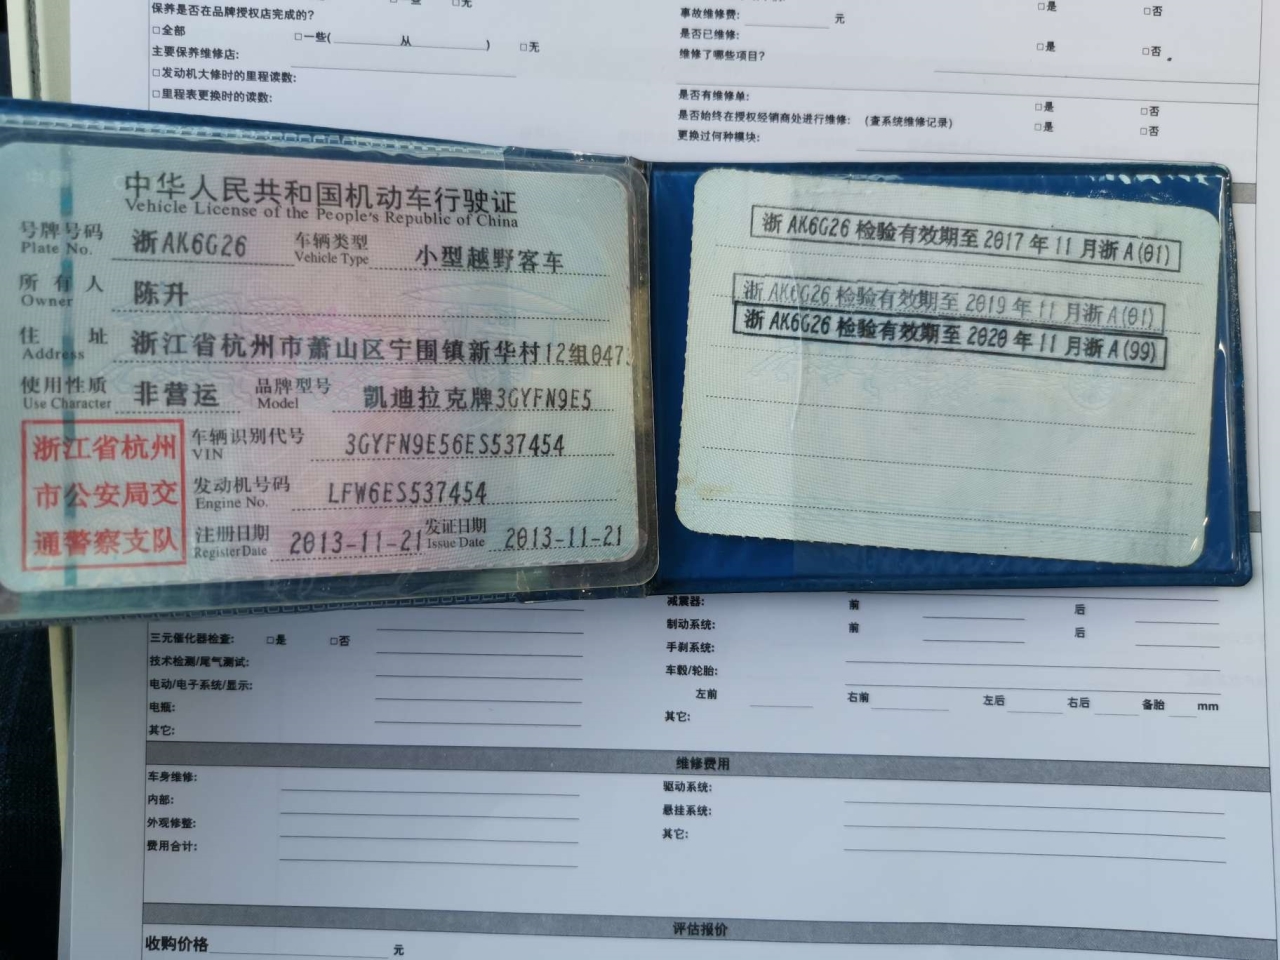 保养是否在品牌授权店完成的?
□全部 □一些( 从 ) □无
主要保养维修店:
□发动机大修时的里程读数:
□里程表更换时的读数:
事故维修费: 元 □是 □否
是否已维修:
维修了哪些项目? □是 □否
是否有维修单: □是 □否
是否始终在授权经销商处进行维修: (查系统维修记录) □是 □否
更换过何种模块:
中华人民共和国机动车行驶证
Vehicle License of the People's Republic of China
号牌号码 浙AK6G26 车辆类型 小型越野客车
Plate No. Vehicle Type
所有人 陈升
Owner
住址 浙江省杭州市萧山区宁围镇新华村12组047
Address
使用性质 非营运 品牌型号 凯迪拉克牌3GYFN9E5
Use Character Model
浙江省杭州
市公安局交
通警察支队
车辆识别代号 3GYFN9E56ES537454
VIN
发动机号码 LFW6ES537454
Engine No.
注册日期 2013-11-21 发证日期 2013-11-21
Register Date Issue Date
浙AK6G26检验有效期至2017年11月浙A(01)
浙AK6G26检验有效期至2019年11月浙A(01)
浙AK6G26检验有效期至2020年11月浙A(99)
三元催化器检查: □是 □否
技术检测/尾气测试:
电动/电子系统/显示:
电瓶:
其它:
减震器: 前 后
制动系统: 前 后
手刹系统:
车毂/轮胎:
左前 右前 左后 右后 备胎 mm
其它:
维修费用
车身维修:
内部:
外观修整:
费用合计:
驱动系统:
悬挂系统:
其它:
评估报价
收购价格 元